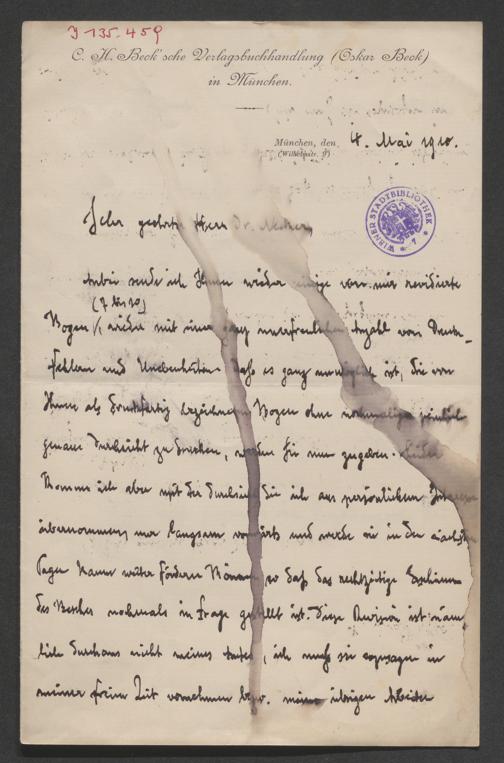 J 135.459
C. H. Beck'sche Verlagsbuchhandlung (Oskar Beck)
in München.
München, den 4. Mai 1910.
(Wilhelmstr. 9)
WIENER STADTBIBLIOTHEK
Sehr geehrter Herr Dr.
Anbei sende ich Ihnen wieder einige von mir revidierte
(7 bis 10)
Bogen, wieder mit einer ganz unerfreulichen Anzahl von Druck-
fehlern und Unebenheiten. Daß es ganz unmöglich ist, die von
Ihnen als druckfertig bezeichneten Bogen ohne nochmalige peinlich
genaue Durchsicht zu drucken, werden Sie nun zugeben. Leider
komme ich aber mit der Durchsicht, die ich aus persönlichem Interesse
übernommen, nur langsam vorwärts und werde sie in den nächsten
Tagen kaum weiter fördern können, so daß das rechtzeitige Erscheinen
des Buches nochmals in Frage gestellt ist. Diese Revision ist näm-
lich durchaus nicht meines Amtes, ich muß sie sozusagen in
meiner freien Zeit vornehmen bezw. meine übrigen Arbeiten